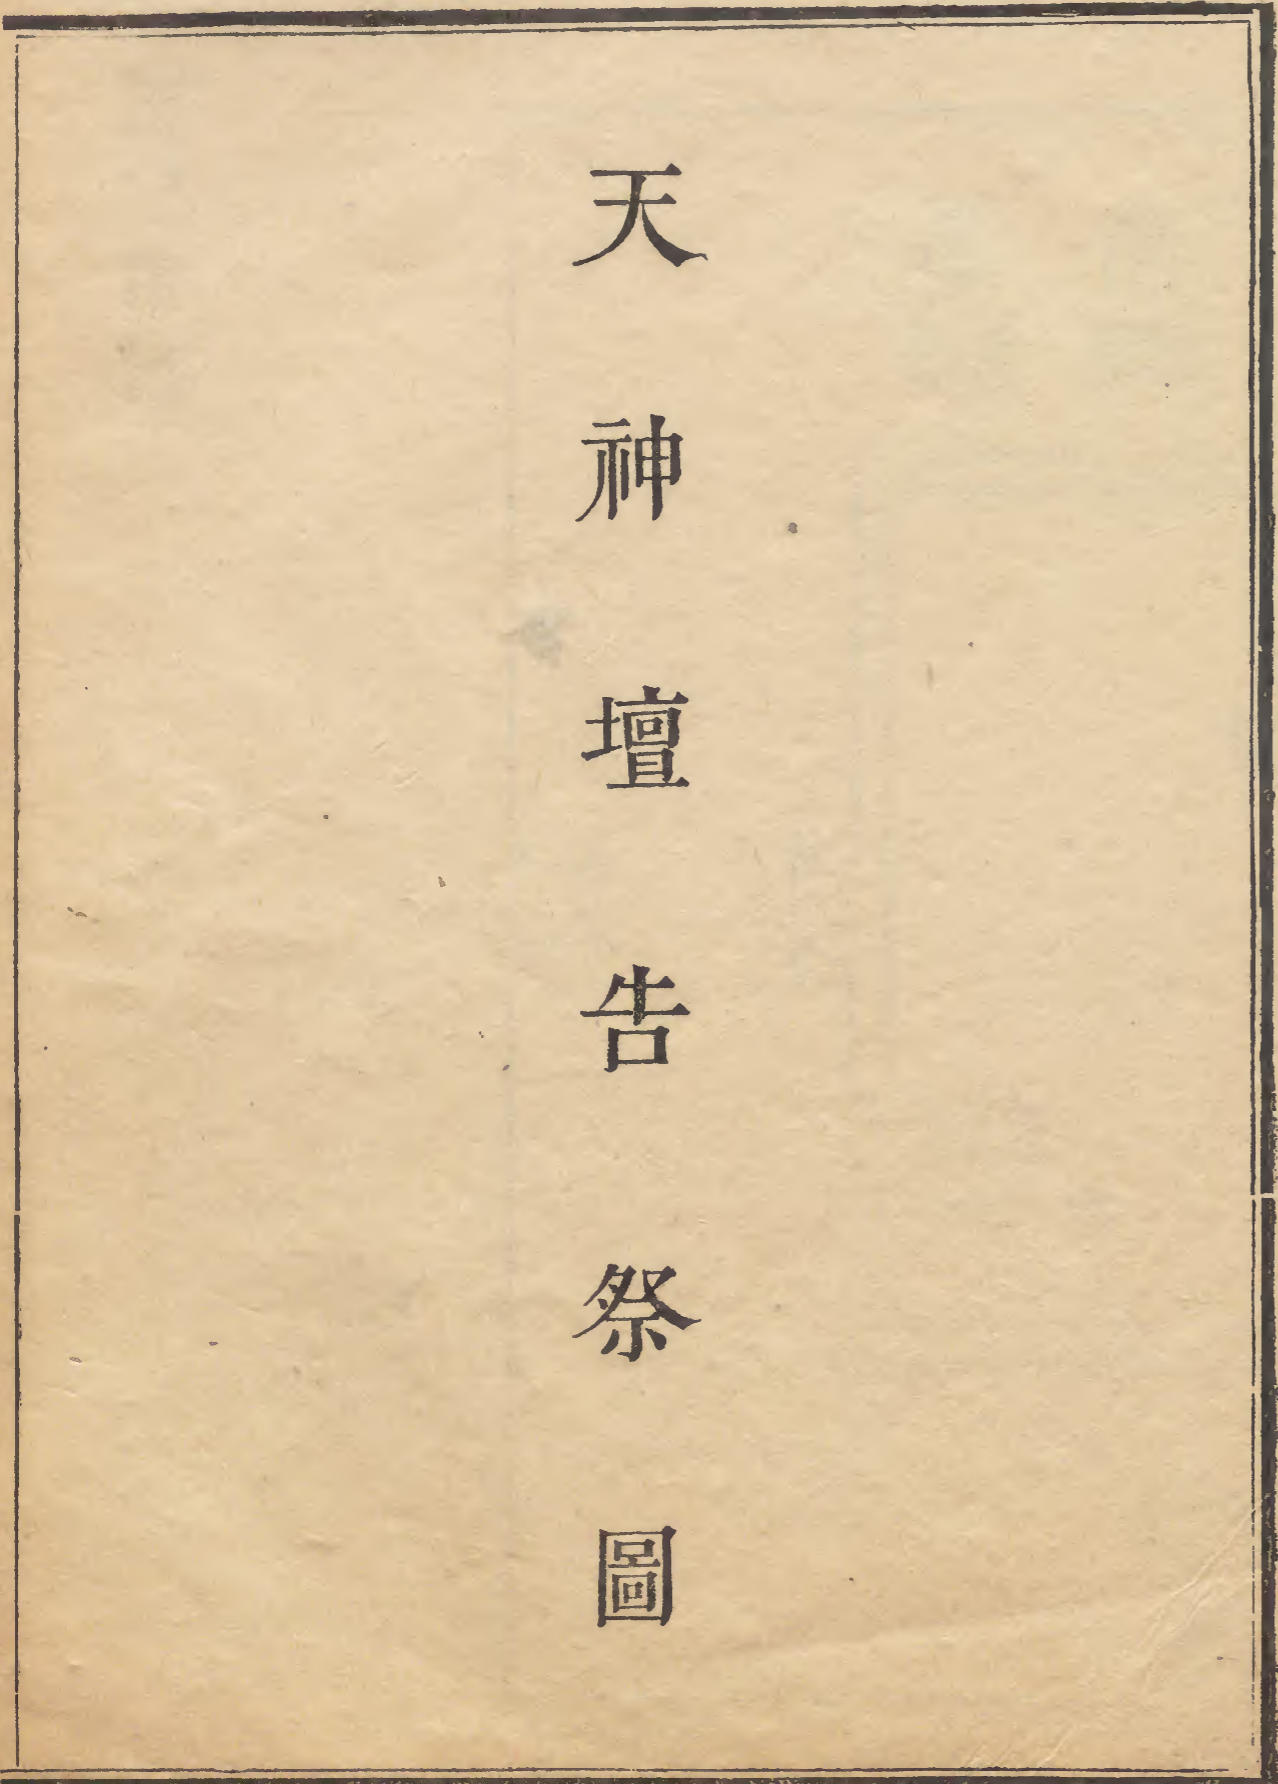 天神壇告祭圖